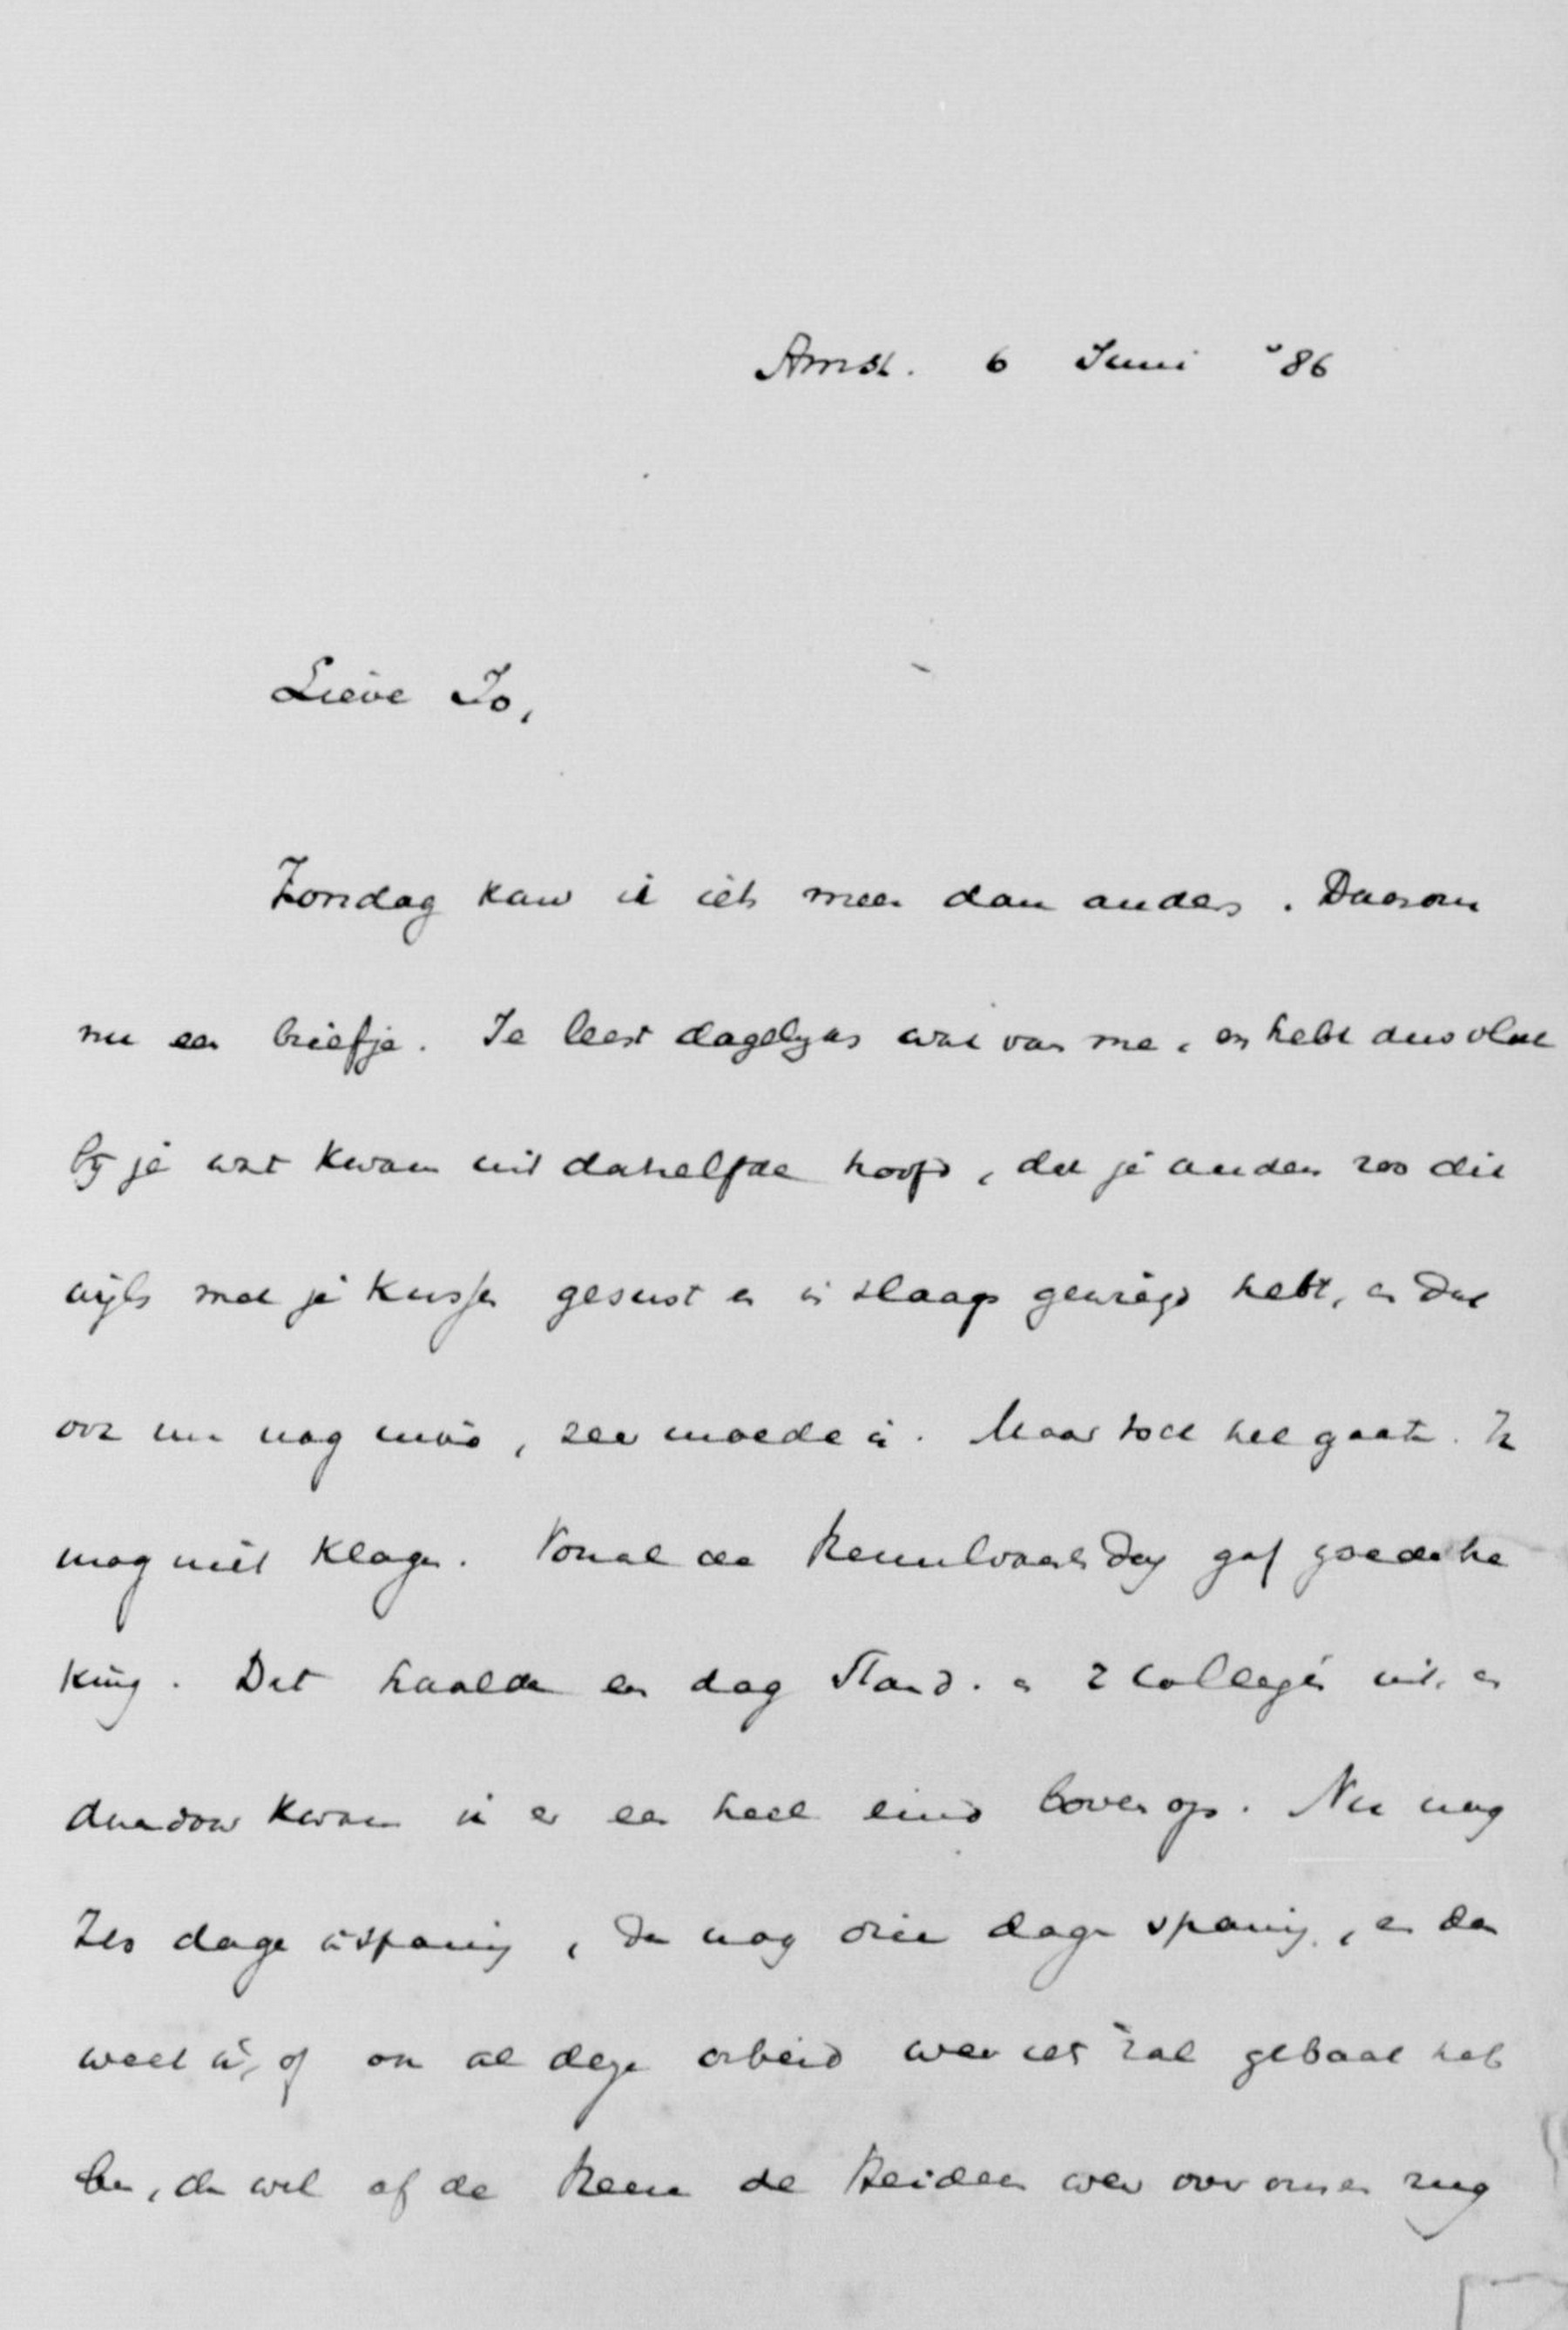 Amst. 6 Juni '86
Lieve Jo,
Zondag kan ik iets meer dan anders. Daarom
nu een briefje. Je leest dagelyks wat van me, en hebt dus vlak
by je wat kwam uit datzelfde hoofd, dat je anders zoo dik
wijls met je kussen gesust en in slaap gewiegd hebt, en dat
ook nu nog moe, zeer moede is. Maar toch het gaat. Ik
mag niet klagen. Vooral de Hemelvaartsdag gaf goede
king. Dat haalde een dag Stand. en 2 collegies uit, en
daardoor kwam ik er een heel eind boven op. Nu nog
zes dagen inspanning, dan nog drie dagen spanning, en dan
weet ik, of on al deze arbeid weer iets zal gebaat heb
ben, dan wel of de Heere de leiden weer over onzen rug